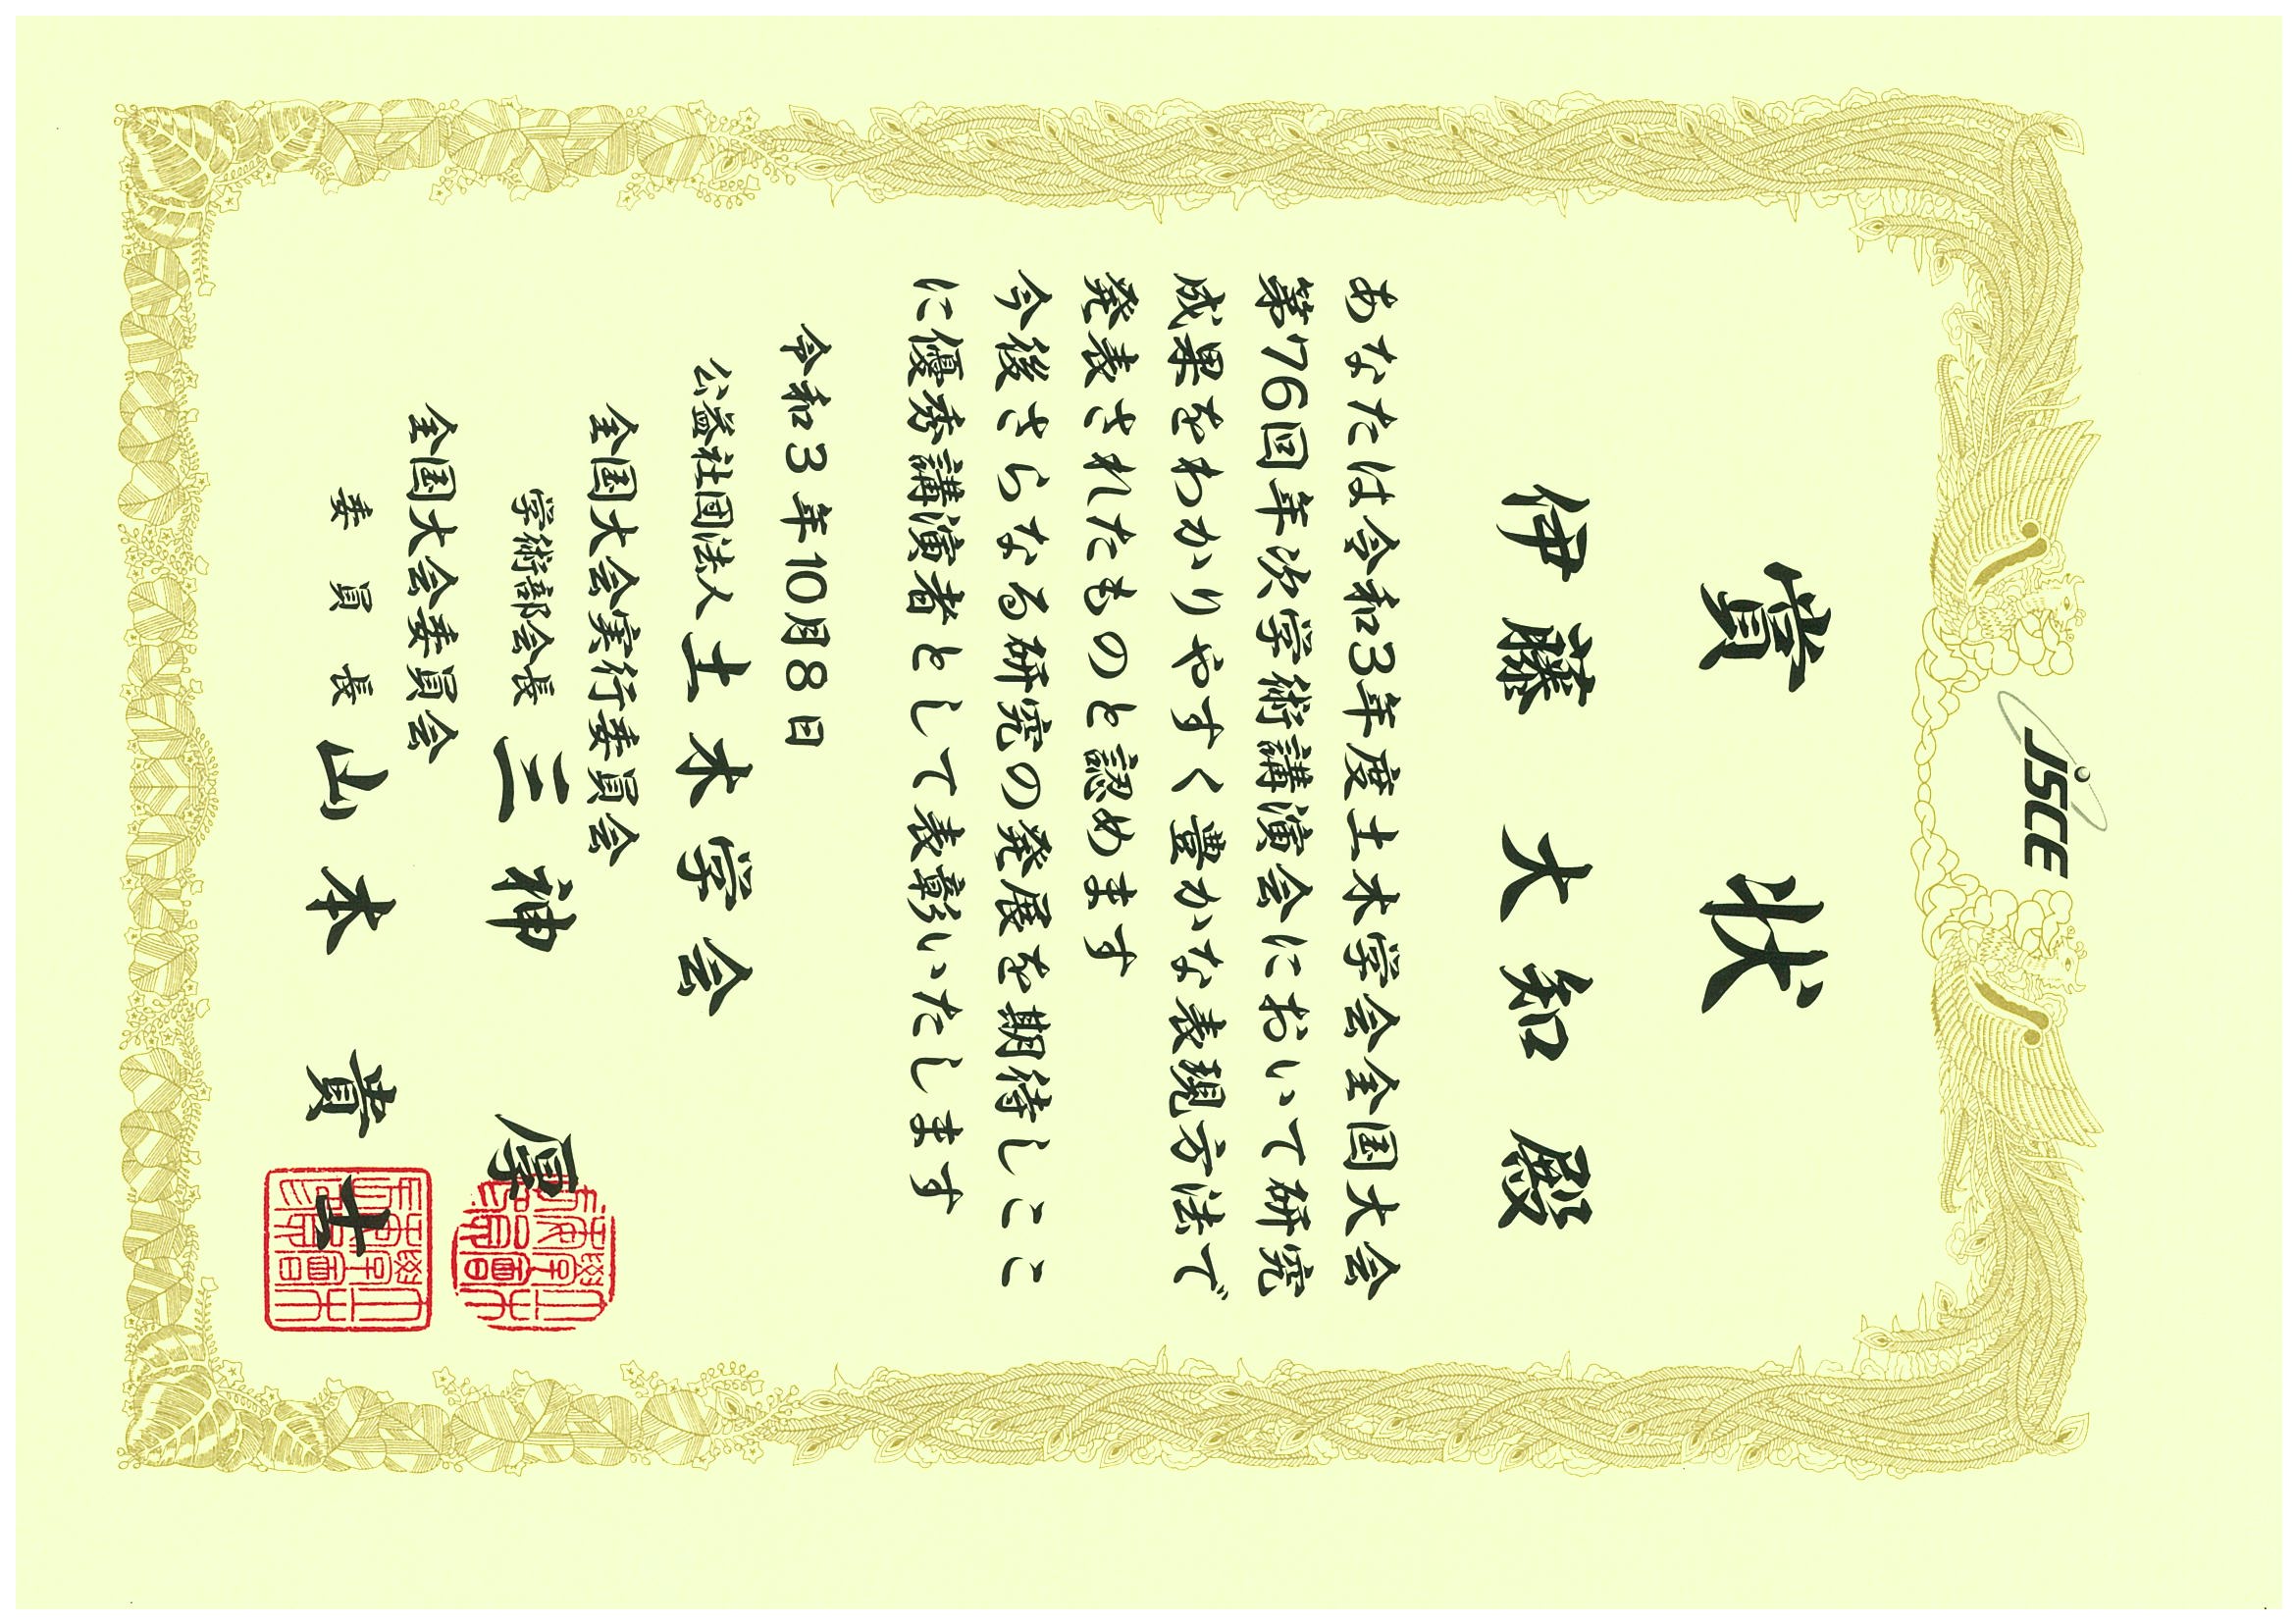 JSCE
賞状
伊藤大知殿
あなたは令和3年度土木学会全国大会
第76回年次学術講演会において研究
成果をわかりやすく豊かな表現方法で
発表されたものと認めます
今後さらなる研究の発展を期待しここ
に優秀講演者として表彰いたします
令和3年10月8日
公益社団法人土木学会
全国大会実行委員会
学術部会長 三神 厚
全国大会委員会
委員長 山本 貴士